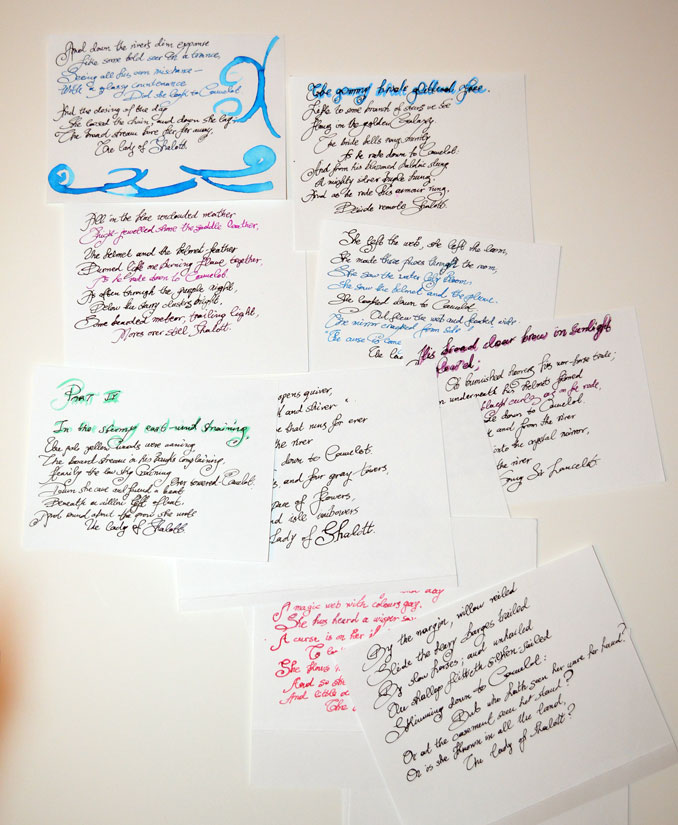 And down the river's dim expanse
Like some bold seer in a trance,
Seeing all his own mischance –
With a glassy countenance
Did she look to Camelot.
And the closing of the day
She loosed the chain, and down she lay
The broad stream bore her far away,
The lady of Shalott.
The gemmy bridle glittered free.
Like to some branch of stars we see
Hung in the golden Galaxy.
The bridle bells rang merrily
As he rode down to Camelot.
And from his blazoned baldric slung
A mighty silver bugle hung,
And as he rode his armour rung,
Beside remote Shalott.
All in the blue unclouded weather
Thick-jewelled shone the saddle leather,
The helmet and the helmet-feather
Burned like one burning flame together
As he rode down to Camelot.
As often through the purple night,
Below the starry clusters bright,
Some bearded meteor, trailing light,
Moves over still Shalott.
She left the web, she left the loom,
She made three paces through the room,
She saw the water lily bloom,
She saw the helmet and the plume.
She looked down to Camelot.
Out flew the web and floated wide
The mirror cracked from side
"The curse is come
The
His broad clear brow in sunlight
burnished hooves his war-horse trode;
underneath his helmet flowed
black curls as on he rode,
down to Camelot.
and from the river
into the crystal mirror,
the river
Sang Sir Lancelot.
Part IV
In the stormy east-wind straining,
The pale yellow woods were waning,
The broad stream in his banks complaining,
Heavily the low sky raining
Over towered Camelot.
Down she came and found a boat
Beneath a willow left afloat
And round about the prow she wrote
The lady of Shalott.
quiver,
and shiver
that runs for ever
the river
down to Camelot.
and four gray towers,
of flowers,
isle embowers
Lady of Shalott.
A magic web with colours gay.
She has heard a wisper say
A curse is on her
To
She knows
And so
And little
The
By the margin, willow veiled
Slide the heavy barges trailed
By slow horses; and unhailed
The shallop flitteth silken-sailed
Skimming down to Camelot:
But who hath seen her wave her hand?
Or at the casement seen her stand?
Or is she known in all the land,
The lady of Shalott?